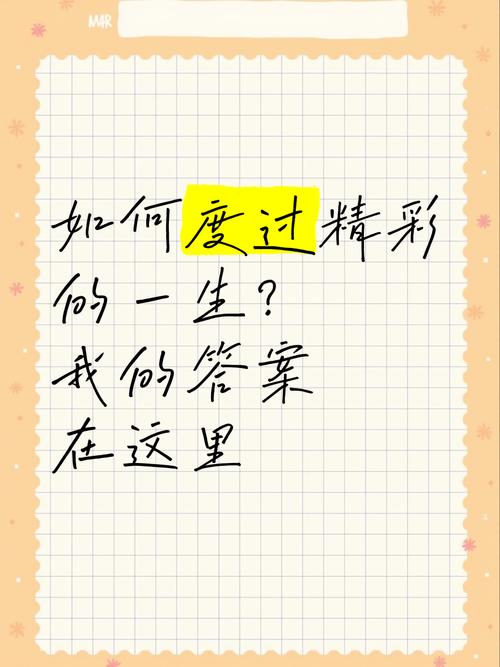 MAR
如何度过精彩
的一生？
我的答案
在这里